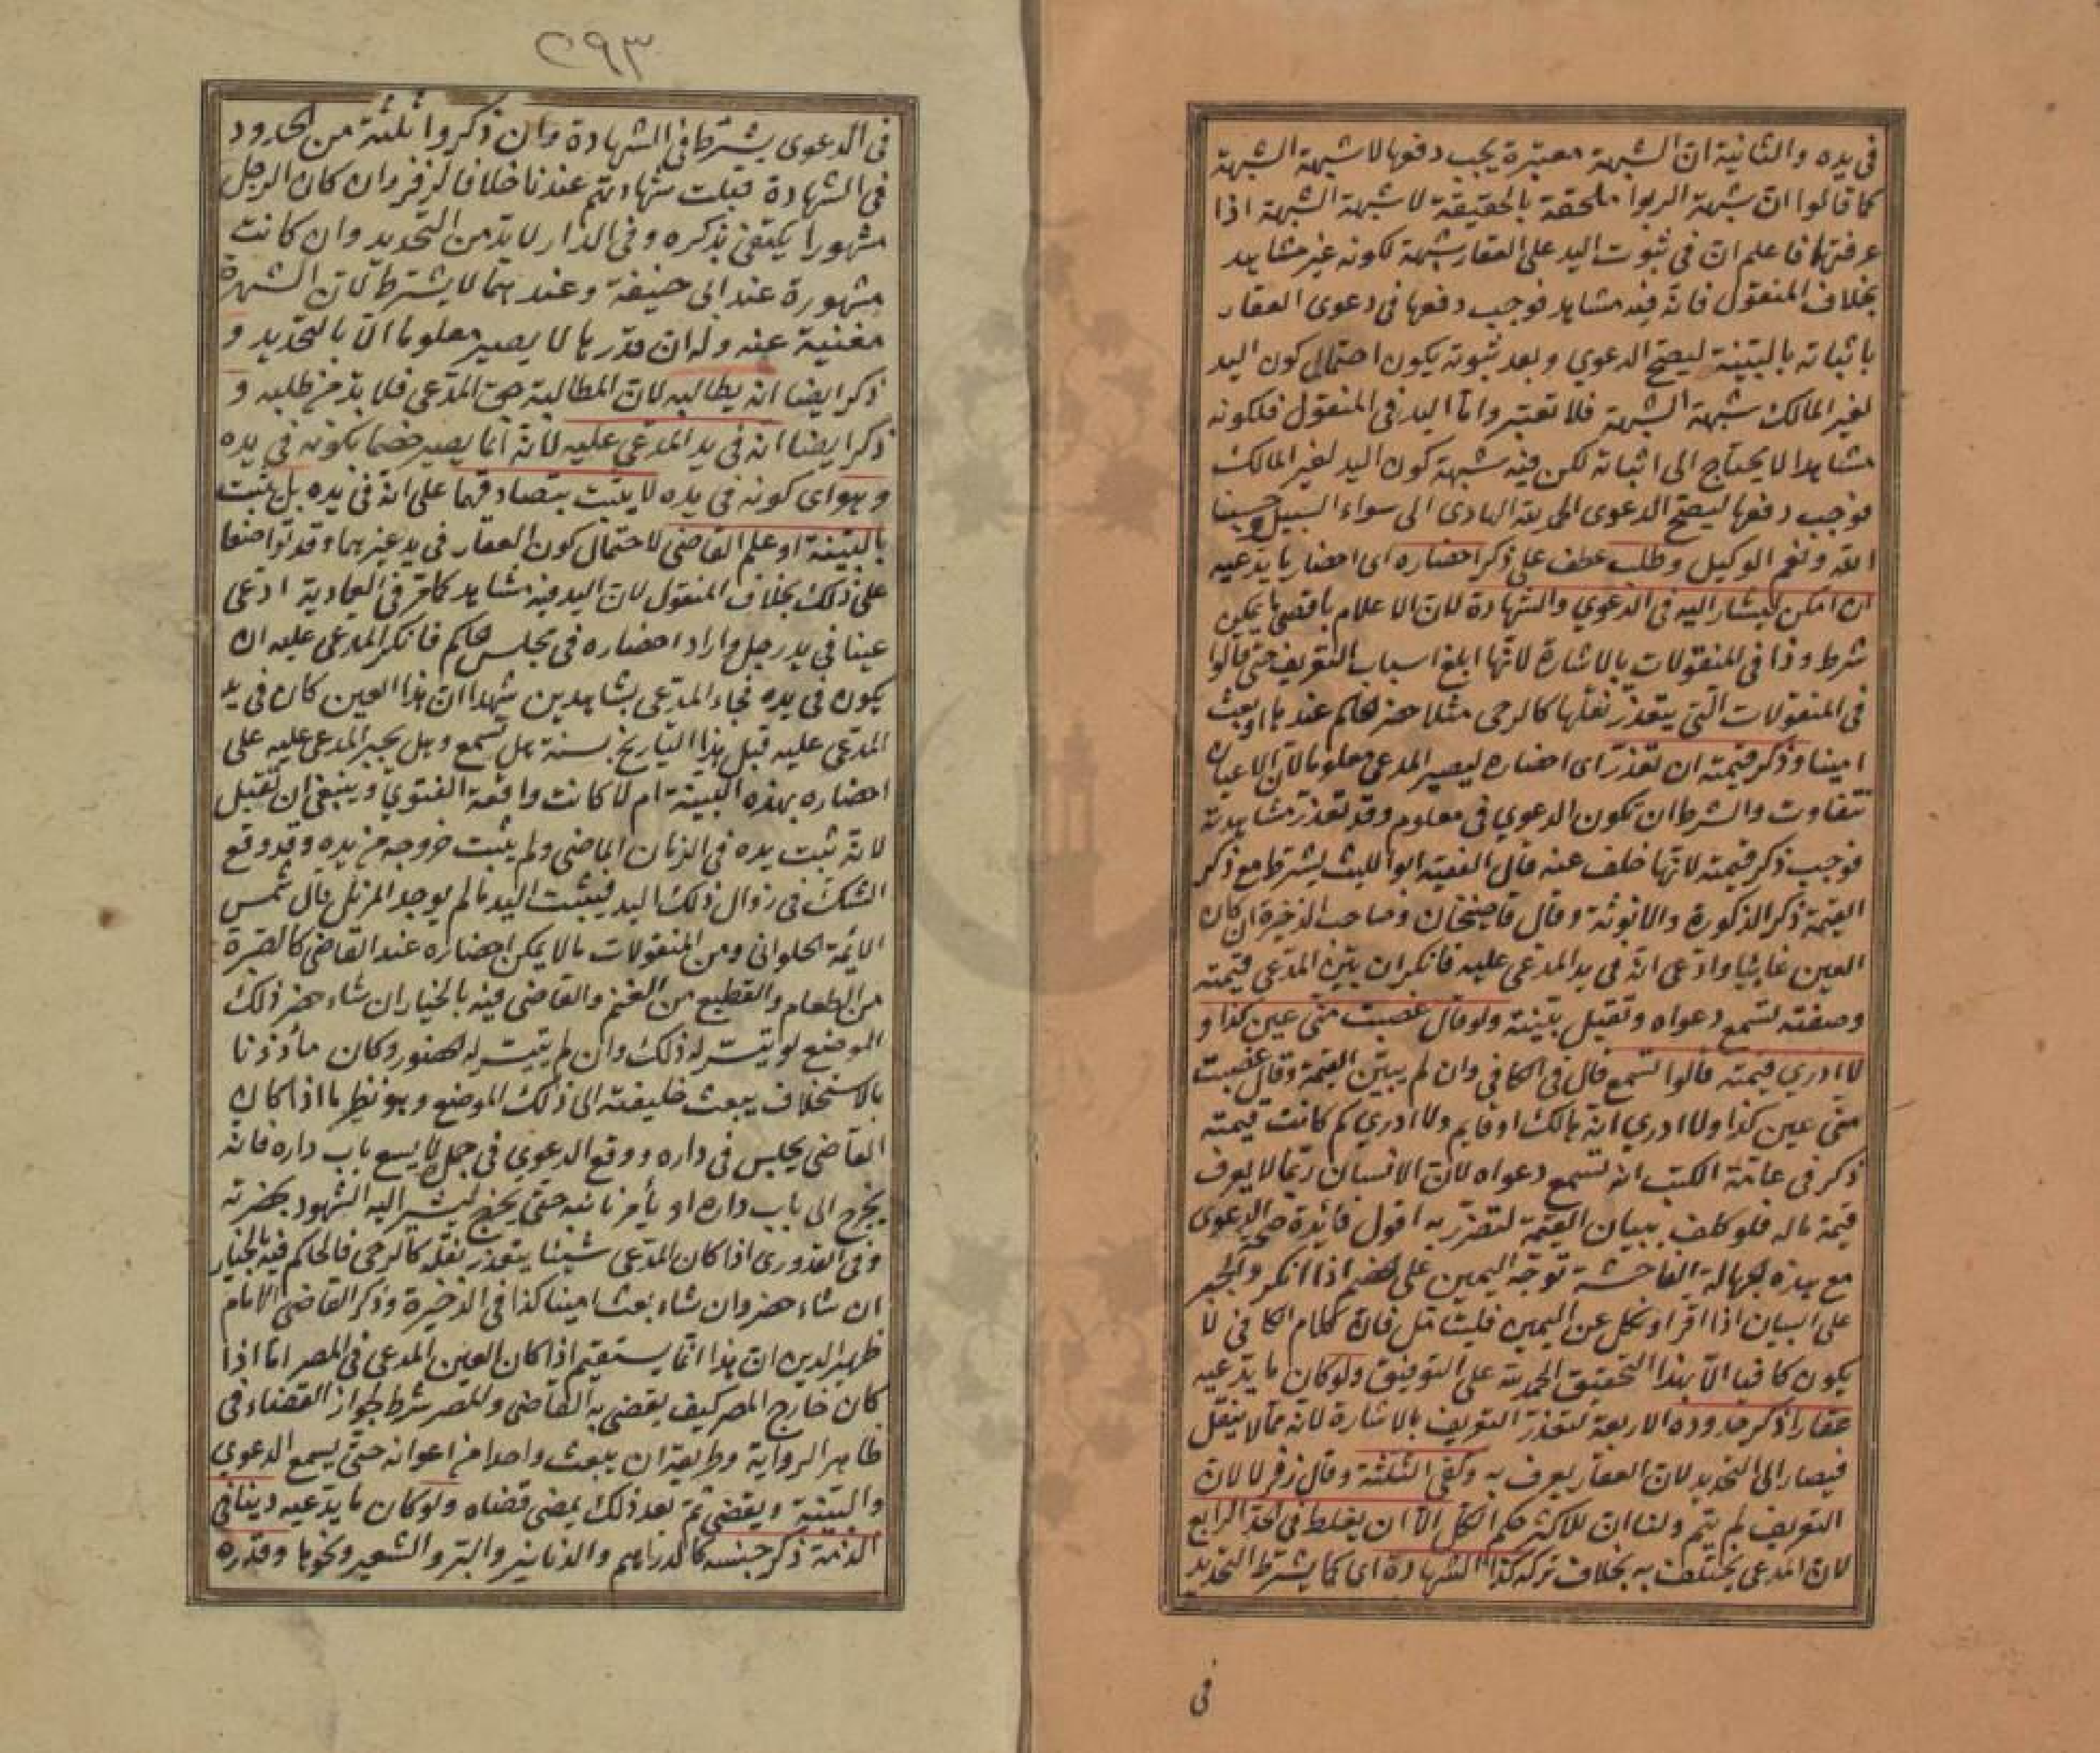 في يده والثانية ان الشبهة معتبرة يجب دفعها لا شبهة الشبهة
كما قالوا ان شبهة الربوا ملحقة بالحقيقة لا شبهة الشبهة اذا
عرفتها فاعلم ان في ثبوت اليد على العقار شبهة لكونه غير مشاهد
بخلاف المنقول فانه فيه مشاهد فوجب دفعها في دعوى العقار
باثباته بالبينة ليصح الدعوي وبعد ثبوته يكون احتمال كون اليد
لغير المالك شبهة الشبهة فلا تعتبر واما اليد في المنقول فلكونه
مشاهدا لا يحتاج الى اثباته لكن فيه شبهة كون اليد لغير المالك
فوجب دفعها ليصح الدعوى الحمد لله الهادى الى سواء السبيل وحسبنا
الله ونعم الوكيل وطلب عطف على ذكر احضاره اى احضار ما يدعيه
ان امكن ليشار اليه في الدعوي والشهادة لان الاعلام باقصى ما يمكن
شرط وذا في المنقولات بالاشارة لانها ابلغ اسباب التعريف حتى قالوا
في المنقولات التي يتعذر نقلها كالرحى مثلا حضر الحاكم عندها او بعث
امينا وذكر قيمته ان تعذر اى احضاره ليصير المدعى معلوما لان الاعيان
تتفاوت والشرط ان تكون الدعوي في معلوم وقد تعذر مشاهدته
فوجب ذكر قيمته لانها خلف عنه قال الفقيه ابو الليث يشترط مع ذكر
القيمة ذكر الذكورة والانوثة وقال قاضيخان وصاحب الذخيرة ان كان
العين غائبا وادعى انه في يد المدعى عليه فانكر ان بين المدعى قيمته
وصفته تسمع دعواه وتقبل بينته ولو قال غصبت منى عين كذا و
لا ادري قيمته قالوا تسمع قال في الكافي وان لم يبين القيمة وقال غصبت
منى عين كذا ولا ادري انه هالك او قايم ولا ادري كم كانت قيمته
ذكر في عامة الكتب انه تسمع دعواه لان الانسان ربما لا يعرف
قيمة ماله فلو كلف ببيان القيمة لتضرر به اقول فائدة صحة الدعوى
مع هذه الجهالة الفاحشة توجه اليمين على الخصم اذا انكر والجبر
على البيان اذا اقر او نكل عن اليمين فليتامل فان كلام الكافي لا
يكون كافيا الا بهذا التحقيق الحمد لله على التوفيق ولو كان ما يدعيه
عقارا ذكر حدوده الاربعة لتعذر التعريف بالاشارة لانه مما لا ينقل
فيصار الى التحديد لان العقار يعرف به وكفى الثلثة وقال زفر لا لان
التعريف لم يتم ولنا ان للاكثر حكم الكل الا ان يغلط في الحد الرابع
لان المدعى يختلف به بخلاف تركه كذا الشهادة اى كما يشترط التحديد
في
٢٩٣
في الدعوى يشترط في الشهادة وان ذكروا ثلثة من الحدود
في الشهادة قبلت شهادتهم عندنا خلافا لزفر وان كان الرجل
مشهورا يكتفى بذكره وفي الدار لا بد من التحديد وان كانت
مشهورة عند ابي حنيفة وعندهما لا يشترط لان الشهرة
مغنية عنه وله ان قدرها لا يصير معلوما الا بالتحديد و
ذكر ايضا انه يطالبه لان المطالبة حق المدعى فلا بد من طلبه و
ذكر ايضا انه في يد المدعى عليه لانه انما يصير خصما بكونه في يده
وهو اى كونه في يده لا يثبت بتصادقهما على انه في يده بل يثبت
بالبينة او علم القاضى لاحتمال كون العقار في يد غيرهما وقد تواضعا
على ذلك بخلاف المنقول لان اليد فيه مشاهد كما مر في العمادية ادعى
عينا في يد رجل واراد احضاره في مجلس الحاكم فانكر المدعى عليه ان
يكون في يده فجاء المدعى بشاهدين شهدا ان هذا العين كان في يد
المدعى عليه قبل هذا التاريخ بسنة هل تسمع وهل يجبر المدعى عليه على
احضاره بهذه البينة ام لا كانت واقعة الفتوي وينبغى ان تقبل
لانه ثبت يده في الزمان الماضى ولم يثبت خروجه من يده وقد وقع
الشك في زوال ذلك اليد فيثبت اليد ما لم يوجد المزيل قال شمس
الائمة الحلوانى ومن المنقولات ما لا يمكن احضاره عند القاضى كالصبرة
من الطعام والقطيع من الغنم والقاضى فيه بالخيار ان شاء حضر ذلك
الموضع لو تيسر له ذلك وان لم يتيسر له الحضور وكان مأذونا
بالاستخلاف يبعث خليفته الى ذلك الموضع وهو نظير ما اذا كان
القاضى يجلس في داره ووقع الدعوي في جمل لا يسع باب داره فانه
يخرج الى باب داره او يأمر نائبه حتى يخرج ليشير اليه الشهود بحضرته
وفي القدورى اذا كان المدعى شيئا يتعذر نقله كالرحى فالحاكم فيه بالخيار
ان شاء حضر وان شاء بعث امينا كذا في الذخيرة وذكر القاضى الامام
ظهير الدين ان هذا انما يستقيم اذا كان العين المدعى في المصر اما اذا
كان خارج المصر كيف يقضى به القاضى والمصر شرط لجواز القضاء في
ظاهر الرواية وطريقه ان يبعث واحدا من اعوانه حتى يسمع الدعوي
والبينة ويقضى ثم بعد ذلك يمضى قضاه ولو كان ما يدعيه دينا في
الذمة ذكر جنسه كالدراهم والدنانير والبر والشعير ونحوها وقدره